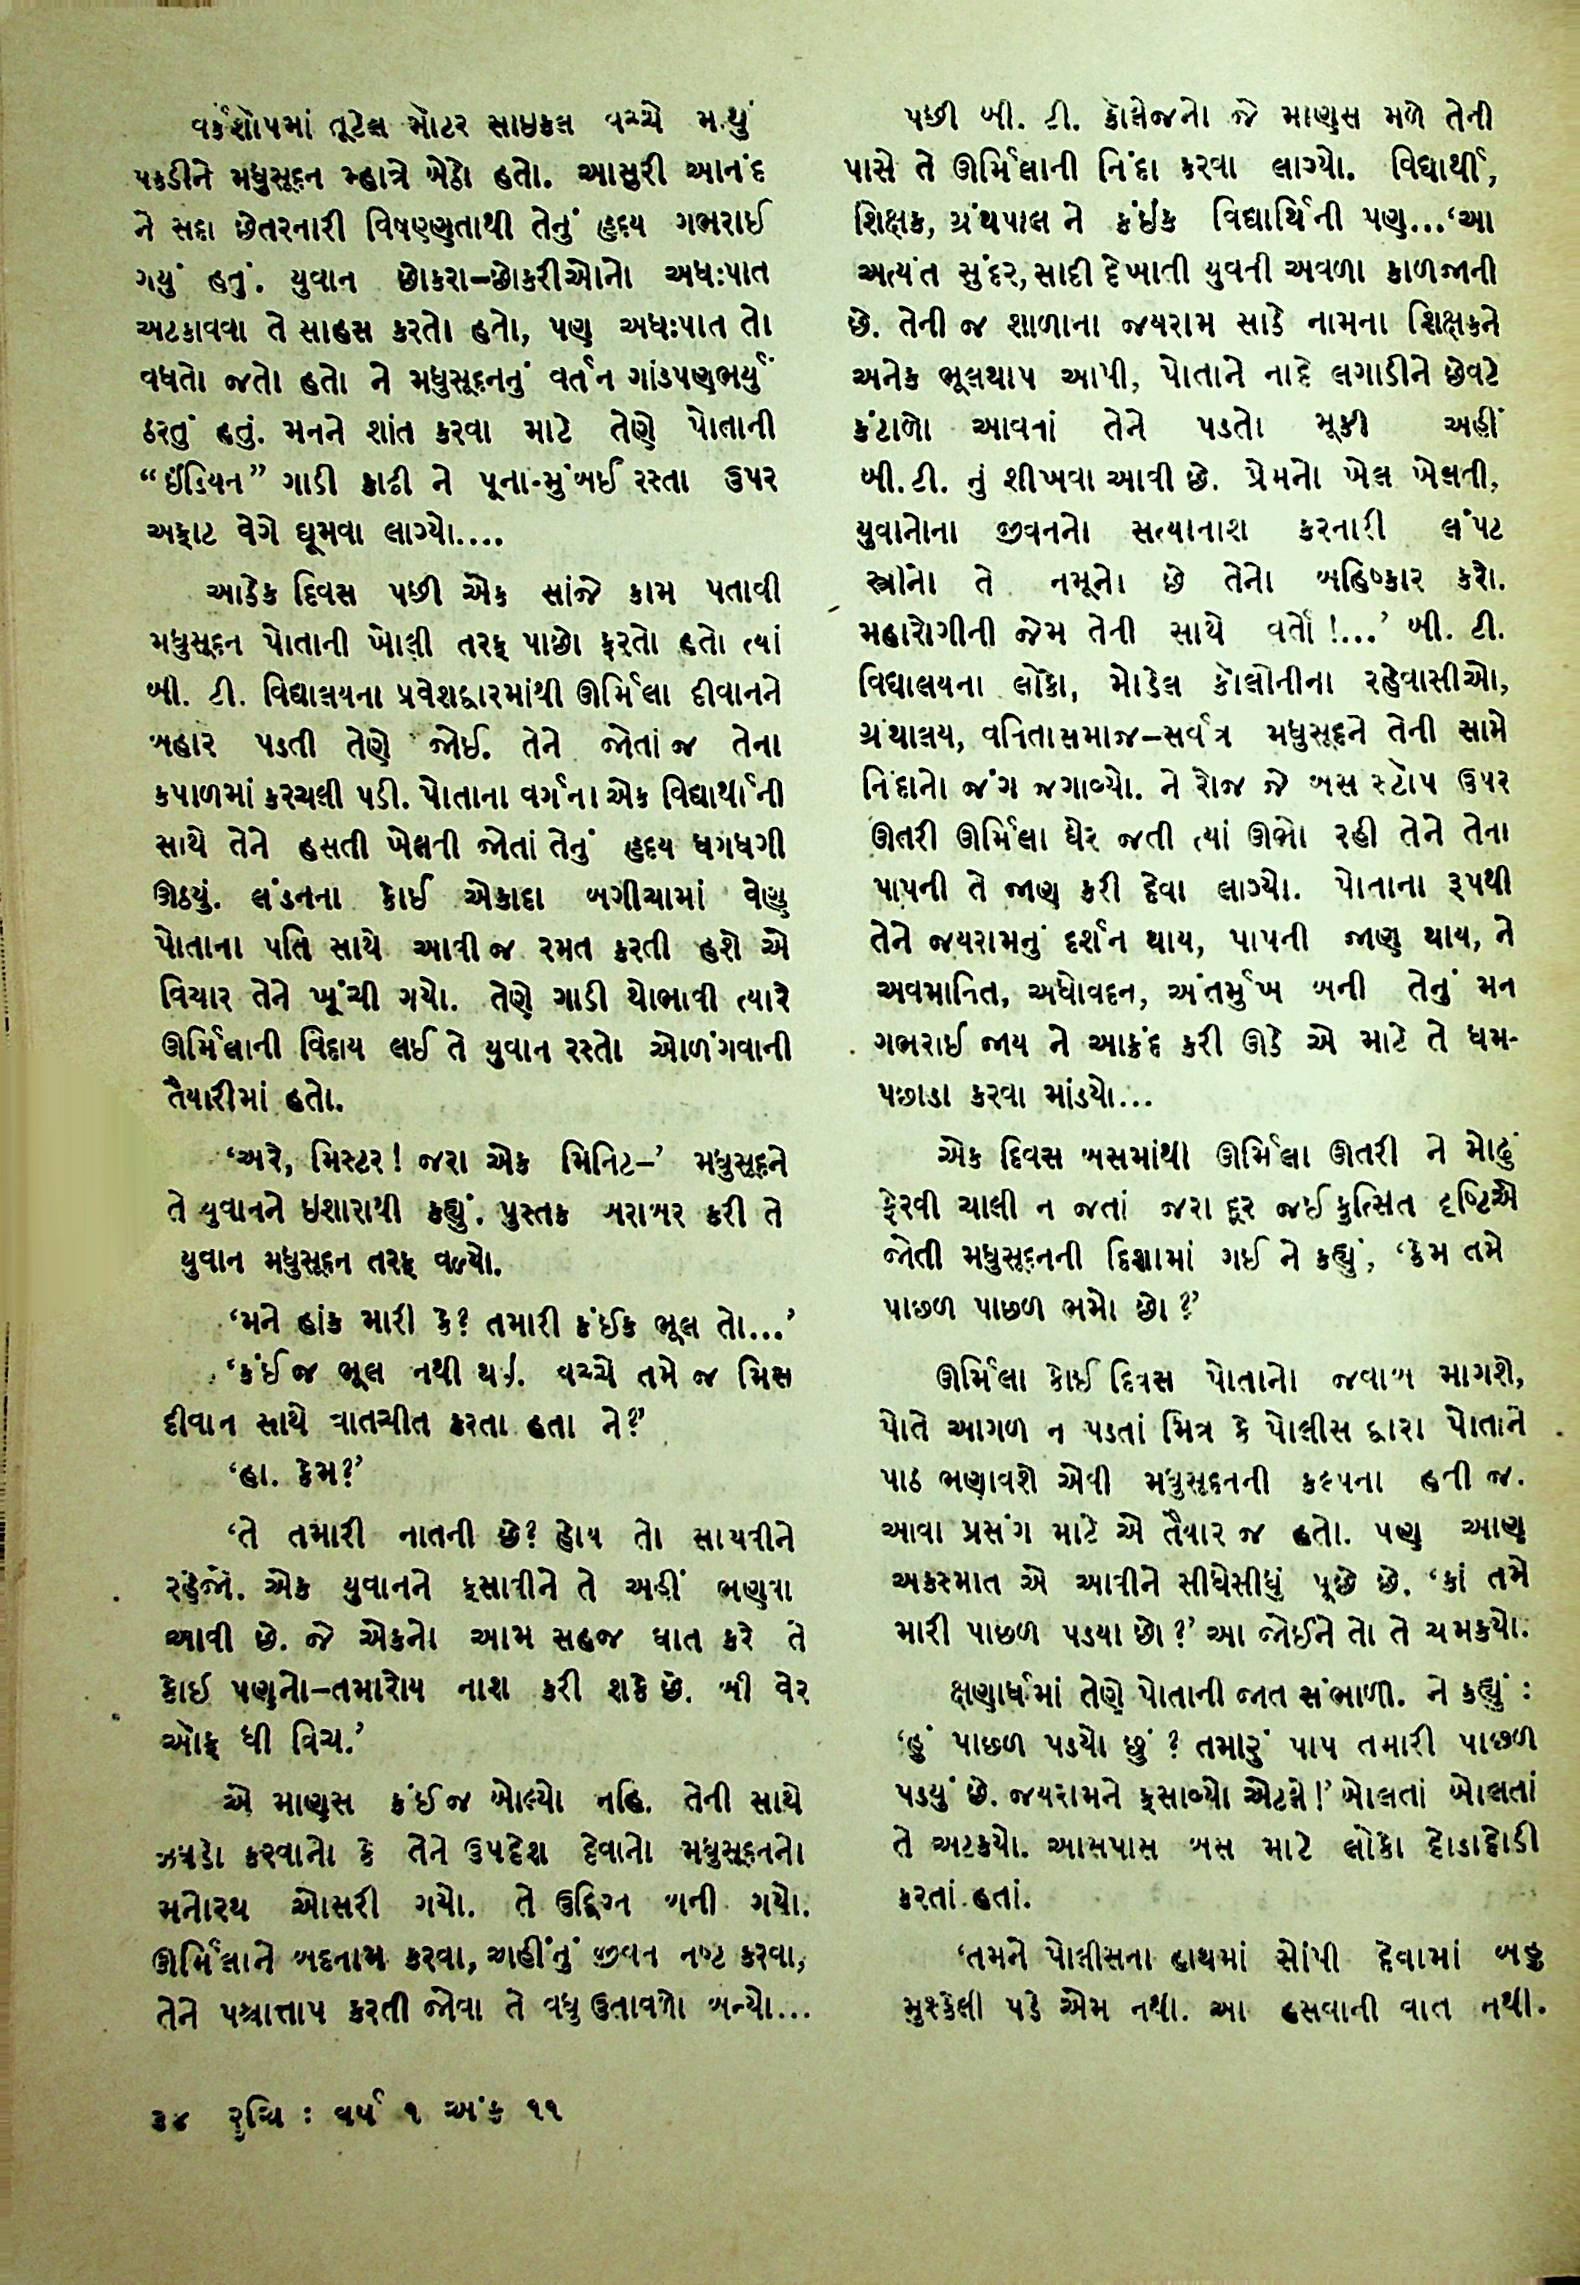 વર્કશૉપમાં તૂટેલ મૉટર સાઇકલ વચ્ચે માથું
પકડીને મધુસૂદન મ્હાત્રે બેઠો હતો. આસુરી આનંદ
ને સદા છેતરનારી વિષણ્ણતાથી તેનું હૃદય ગભરાઈ
ગયું હતું. યુવાન છોકરા–છોકરીઓનો અધઃપાત
અટકાવવા તે સાહસ કરતો હતો, પણ અધઃપાત તો
વધતો જતો હતો ને મધુસૂદનનું વર્તન ગાંડપણભર્યું
ઠરતું હતું. મનને શાંત કરવા માટે તેણે પોતાની
“ઈંડિયન” ગાડી કાઢી ને પૂના-મુંબઈ રસ્તા ઉપર
અફાટ વેગે ઘૂમવા લાગ્યો....
આઠેક દિવસ પછી એક સાંજે કામ પતાવી
મધુસૂદન પોતાની ખોલી તરફ પાછો ફરતો હતો ત્યાં
બી. ટી. વિદ્યાલયના પ્રવેશદ્વારમાંથી ઊર્મિલા દીવાનને
બહાર પડતી તેણે જોઈ. તેને જોતાં જ તેના
કપાળમાં કરચલી પડી. પોતાના વર્ગના એક વિદ્યાર્થીની
સાથે તેને હસતી ખેલતી જોતાં તેનું હૃદય ધગધગી
ઊઠયું. લંડનના કોઈ એકાદા બગીચામાં વેણુ
પોતાના પતિ સાથે આવી જ રમત કરતી હશે એ
વિચાર તેને ખૂંચી ગયો. તેણે ગાડી થોભાવી ત્યારે
ઊર્મિલાની વિદાય લઈ તે યુવાન રસ્તો ઓળંગવાની
તૈયારીમાં હતો.
‘અરે, મિસ્ટર! જરા એક મિનિટ–’ મધુસૂદને
તે યુવાનને ઇશારાથી કહ્યું. પુસ્તક બરાબર કરી તે
યુવાન મધુસૂદન તરફ વળ્યો.
‘મને હાંક મારી કે? તમારી કંઈક ભૂલ તો...’
‘કંઈ જ ભૂલ નથી થઈ. વચ્ચે તમે જ મિસ
દીવાન સાથે વાતચીત કરતા હતા ને?’
‘હા. કેમ?’
‘તે તમારી નાતની છે? હોય તો સાચવીને
રહેજો. એક યુવાનને ફસાવીને તે અહીં ભણવા
આવી છે. જે એકનો આમ સહજ ઘાત કરે તે
કોઈ પણનો–તમારોય નાશ કરી શકે છે. બી વેર
ઑફ ધી વિચ.’
એ માણસ કંઈ જ બોલ્યો નહિ. તેની સાથે
ઝઘડો કરવાનો કે તેને ઉપદેશ દેવાનો મધુસૂદનનો
મનોરથ ઓસરી ગયો. તે ઉદ્વિગ્ન બની ગયો.
ઊર્મિલાને બદનામ કરવા, અહીંનું જીવન નષ્ટ કરવા,
તેને પશ્ચાત્તાપ કરતી જોવા તે વધુ ઉતાવળો બન્યો...
૩૪ રુચિ : વર્ષ ૧ અંક ૧૧
પછી બી. ટી. કૉલેજનો જે માણસ મળે તેની
પાસે તે ઊર્મિલાની નિંદા કરવા લાગ્યો. વિદ્યાર્થી,
શિક્ષક, ગ્રંથપાલ ને કંઈક વિદ્યાર્થિની પણ...‘આ
અત્યંત સુંદર, સાદી દેખાતી યુવતી અવળા કાળજાની
છે. તેની જ શાળાના જયરામ સાઠે નામના શિક્ષકને
અનેક ભૂલથાપ આપી, પોતાને નાદે લગાડીને છેવટે
કંટાળો આવતાં તેને પડતો મૂકી અહીં
બી. ટી. નું શીખવા આવી છે. પ્રેમનો ખેલ ખેલતી,
યુવાનોના જીવનનો સત્યાનાશ કરનારી લંપટ
સ્ત્રીનો તે નમૂનો છે તેનો બહિષ્કાર કરો.
મહારોગીની જેમ તેની સાથે વર્તો !...’ બી. ટી.
વિદ્યાલયના લોકો, મોડેલ કૉલોનીના રહેવાસીઓ,
ગ્રંથાલય, વનિતાસમાજ–સર્વત્ર મધુસૂદને તેની સામે
નિંદાનો જંગ જગાવ્યો. ને રોજ જે બસ સ્ટૉપ ઉપર
ઊતરી ઊર્મિલા ઘેર જતી ત્યાં ઊભો રહી તેને તેના
પાપની તે જાણ કરી દેવા લાગ્યો. પોતાના રૂપથી
તેને જયરામનું દર્શન થાય, પાપની જાણ થાય, ને
અવમાનિત, અધોવદન, અંતર્મુખ બની તેનું મન
ગભરાઈ જાય ને આક્રંદ કરી ઊઠે એ માટે તે ધમ-
પછાડા કરવા માંડયો...
એક દિવસ બસમાંથી ઊર્મિલા ઊતરી ને મોઢું
ફેરવી ચાલી ન જતાં જરા દૂર જઈ કુત્સિત દૃષ્ટિએ
જોતી મધુસૂદનની દિશામાં ગઈ ને કહ્યું, ‘કેમ તમે
પાછળ પાછળ ભમો છો ?’
ઊર્મિલા કોઈ દિવસ પોતાનો જવાબ માગશે,
પોતે આગળ ન પડતાં મિત્ર કે પોલીસ દ્વારા પોતાને
પાઠ ભણાવશે એવી મધુસૂદનની કલ્પના હતી જ.
આવા પ્રસંગ માટે એ તૈયાર જ હતો. પણ આણ
અકસ્માત એ આવીને સીધેસીધું પૂછે છે. ‘કાં તમે
મારી પાછળ પડયા છો ?’ આ જોઈને તો તે ચમકયો.
ક્ષણાર્ધમાં તેણે પોતાની જાત સંભાળી. ને કહ્યું :
‘હું પાછળ પડયો છું ? તમારું પાપ તમારી પાછળ
પડયું છે. જયરામને ફસાવ્યો એટલે !’ બોલતાં બોલતાં
તે અટકયો. આસપાસ બસ માટે લોકો દોડાદોડી
કરતાં હતાં.
‘તમને પોલીસના હાથમાં સોંપી દેવામાં બહુ
મુશ્કેલી પડે એમ નથી. આ હસવાની વાત નથી.